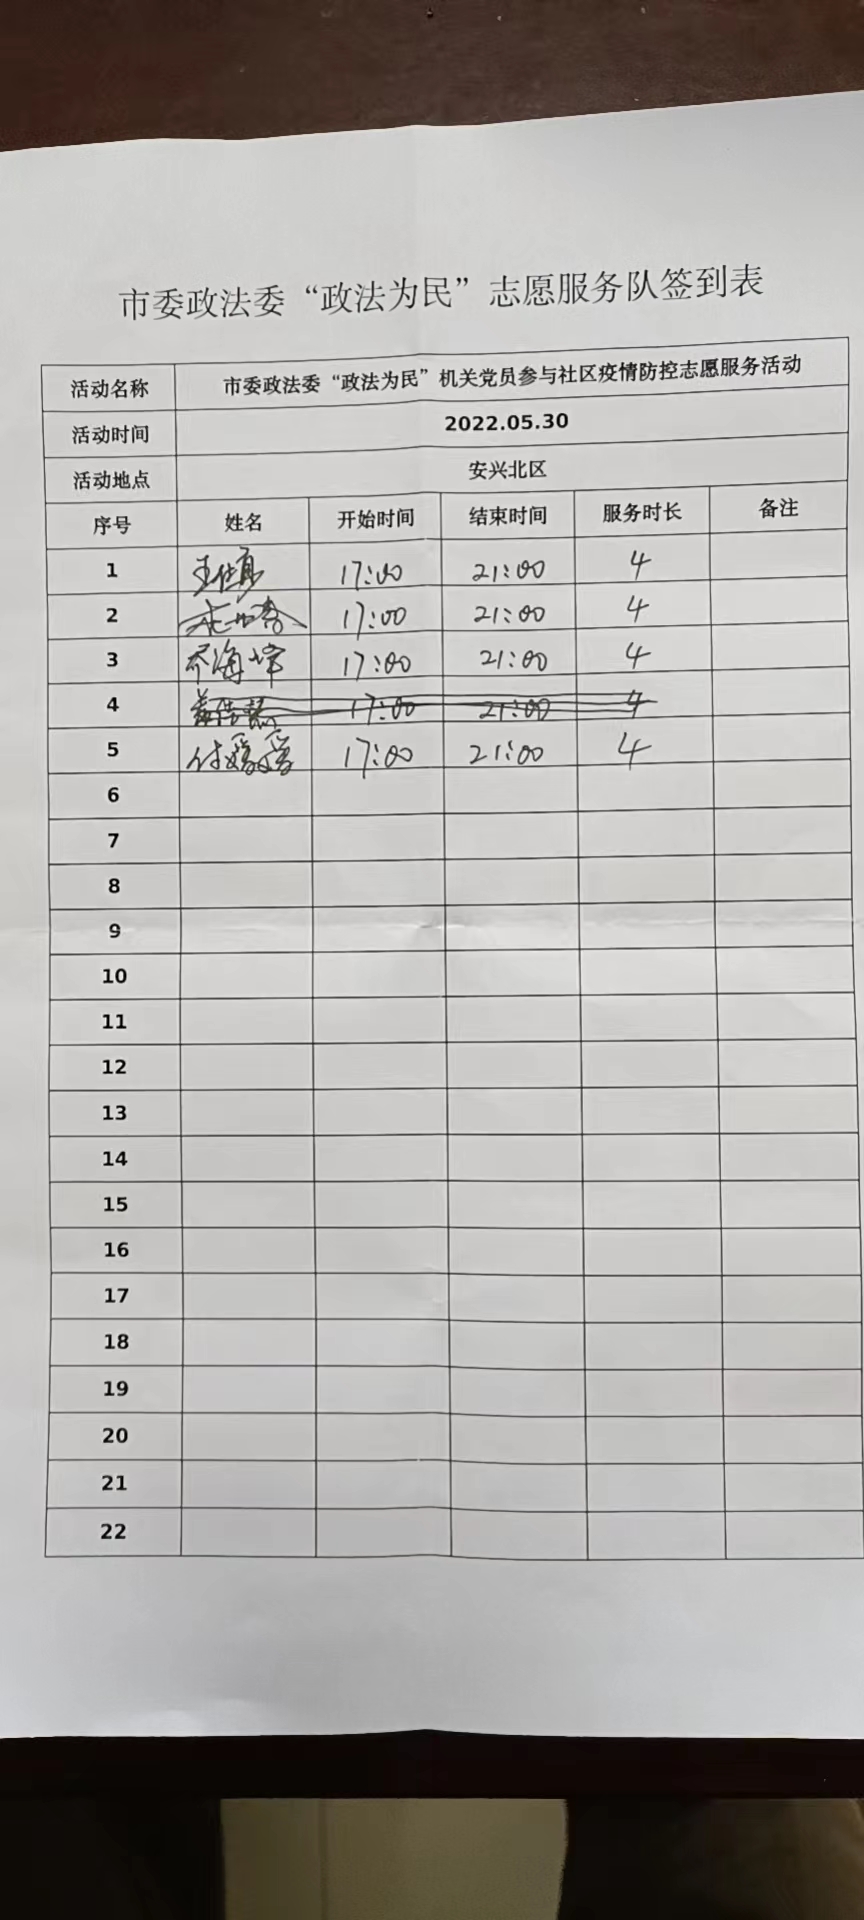 市委政法委“政法为民”志愿服务队签到表
活动名称 市委政法委“政法为民”机关党员参与社区疫情防控志愿服务活动
活动时间 2022.05.30
活动地点 安兴北区
序号 姓名 开始时间 结束时间 服务时长 备注
1 17:00 21:00 4
2 17:00 21:00 4
3 乔海峰 17:00 21:00 4
4 17:00 21:00 4
5 付媛媛 17:00 21:00 4
6
7
8
9
10
11
12
13
14
15
16
17
18
19
20
21
22